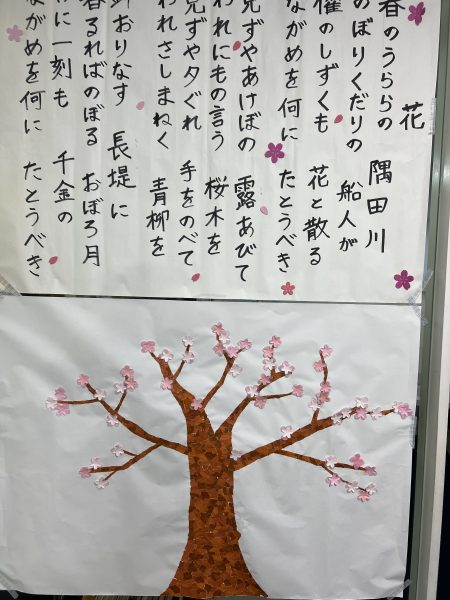 花
春のうららの 隅田川
のぼりくだりの 船人が
櫂のしずくも 花と散る
ながめを何に たとうべき
見ずやあけぼの 露あびて
われにもの言う 桜木を
見ずや夕ぐれ 手をのべて
われさしまねく 青柳を
錦おりなす 長堤に
暮るればのぼる おぼろ月
に一刻も 千金の
ながめを何に たとうべき